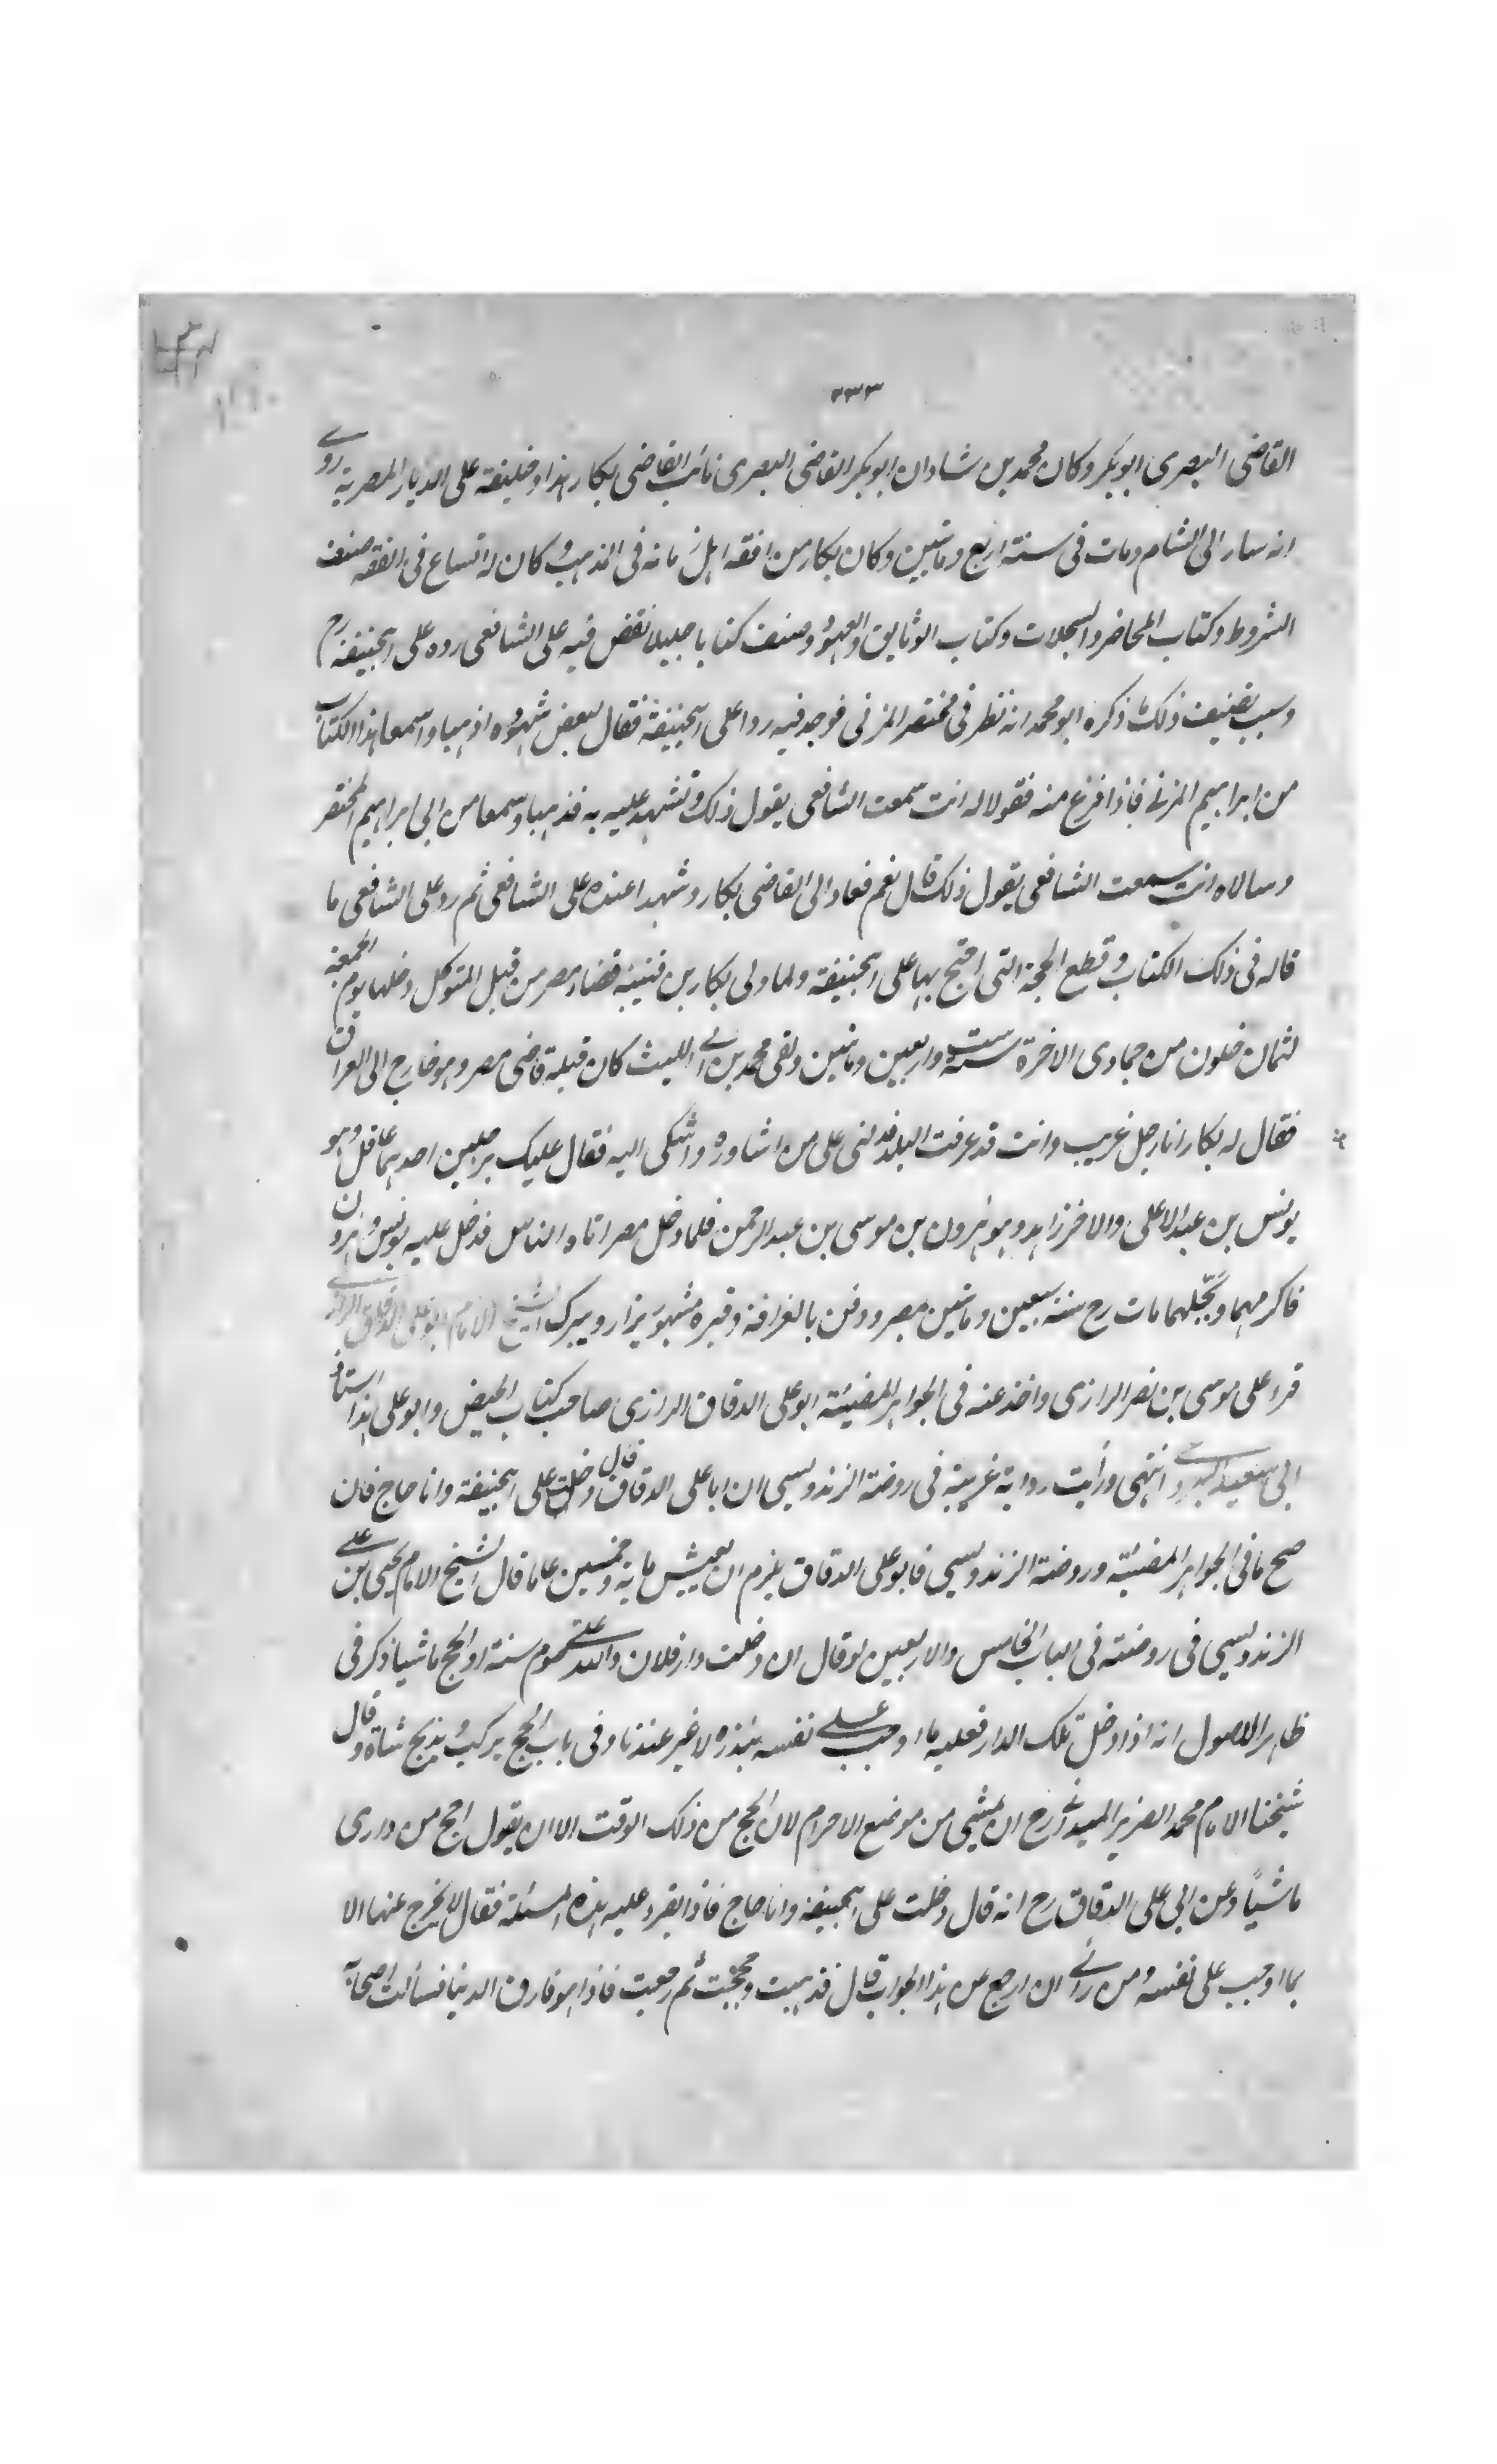 ٢٣٣
القاضى البصرى ابوبكر وكان محمد بن شاذان ابوبكر القاضى البصرى نائب القاضى بكار هذا وخليفته على الديار المصرية روى
انه سار الى الشام ومات فى سنة اربع ومائتين وكان بكار من افقه اهل زمانه فى المذهب وكان له اتساع فى الفقه صنف
الشروط وكتاب المحاضر والسجلات وكتاب الوثايق والعهود وصنف كتابا جليلا نقض فيه على الشافعى رده على ابيحنيفة رح
وسبب تصنيف ذلك ذكره ابو محمد انه نظر فى مختصر المزنى فوجد فيه ردا على ابيحنيفة فقال لبعض شهوده اذهبا واسمعا هذا الكتاب
من ابراهيم المزنى فاذا فرغ منه فقولا له انت سمعت الشافعى يقول ذلك وتشهد عليه به فذهبا وسمعا من ابى ابراهيم المختصر
وسالاه انت سمعت الشافعى يقول ذلك قال نعم فعادا الى القاضى بكار وشهدا عنده على الشافعى ثم رد على الشافعى ما
قاله فى ذلك الكتاب وقطع الحجة التى احتج بها على ابيحنيفة ولما ولى بكار بن قتيبة قضاء مصر من قبل المتوكل دخلها يوم الجمعة
لثمان خلون من جمادى الاخرة سنة ست واربعين ومائتين ولقى محمد بن ابى الليث كان قبله قاضى مصر وهو خارج الى العراق
فقال له بكار انا رجل غريب وانت قد عرفت البلد فدلنى على من اشاوره واشكى اليه فقال عليك برجلين احدهما عاقل وهو
يونس بن عبد الاعلى والاخر زاهد وهو هرون بن موسى بن عبد الرحمن فلما دخل مصر اتاه الناس فدخل عليه يونس وهرون
فاكرمهما وبجلهما مات رح سنة سبعين ومائتين بمصر ودفن بالقرافة وقبره مشهور يزار ويبرك الشيخ الامام ابو على الدقاق الرازى
قرا على موسى بن نصر الرازى واخذ عنه فى الجواهر المضيئة ابو على الدقاق الرازى صاحب كتاب الحيض وابو على هذا استاذ
ابى سعيد البردعى انتهى ورأيت رواية غريبة فى روضة الزندويسى ان ابا على الدقاق قال دخلت على ابيحنيفة وانا حاج فان
صح ما فى الجواهر المضيئة وروضة الزندويسى فابو على الدقاق يلزم ان يعيش ماية وخمسين عاما قال الشيخ الامام يحيى بن على
الزندويسى فى روضته فى الباب الخامس والاربعين لو قال ان دخلت دار فلان فلله على صوم سنة او الحج ماشيا ذكر فى
ظاهر الاصول انه اذا دخل تلك الدار فعليه ما اوجب على نفسه بنذره لا غير عندنا وفى باب الحج يركب ويذبح شاة وقال
شيخنا الامام محمد الضرير الميدانى رح ان يمشى من موضع الاحرام لان الحج من ذلك الوقت الا ان يقول احج من دارى
ماشيًا وعن ابى على الدقاق رح انه قال دخلت على ابيحنيفة وانا حاج فاذا يقرء عليه هذه المسئلة فقال لا يخرج عنها الا
بما اوجب على نفسه ومن رأى ان ارجع عن هذا الجواب قال فذهبت وحججت ثم رجعت فاذا هو فارق الدنيا فسألت اصحابه